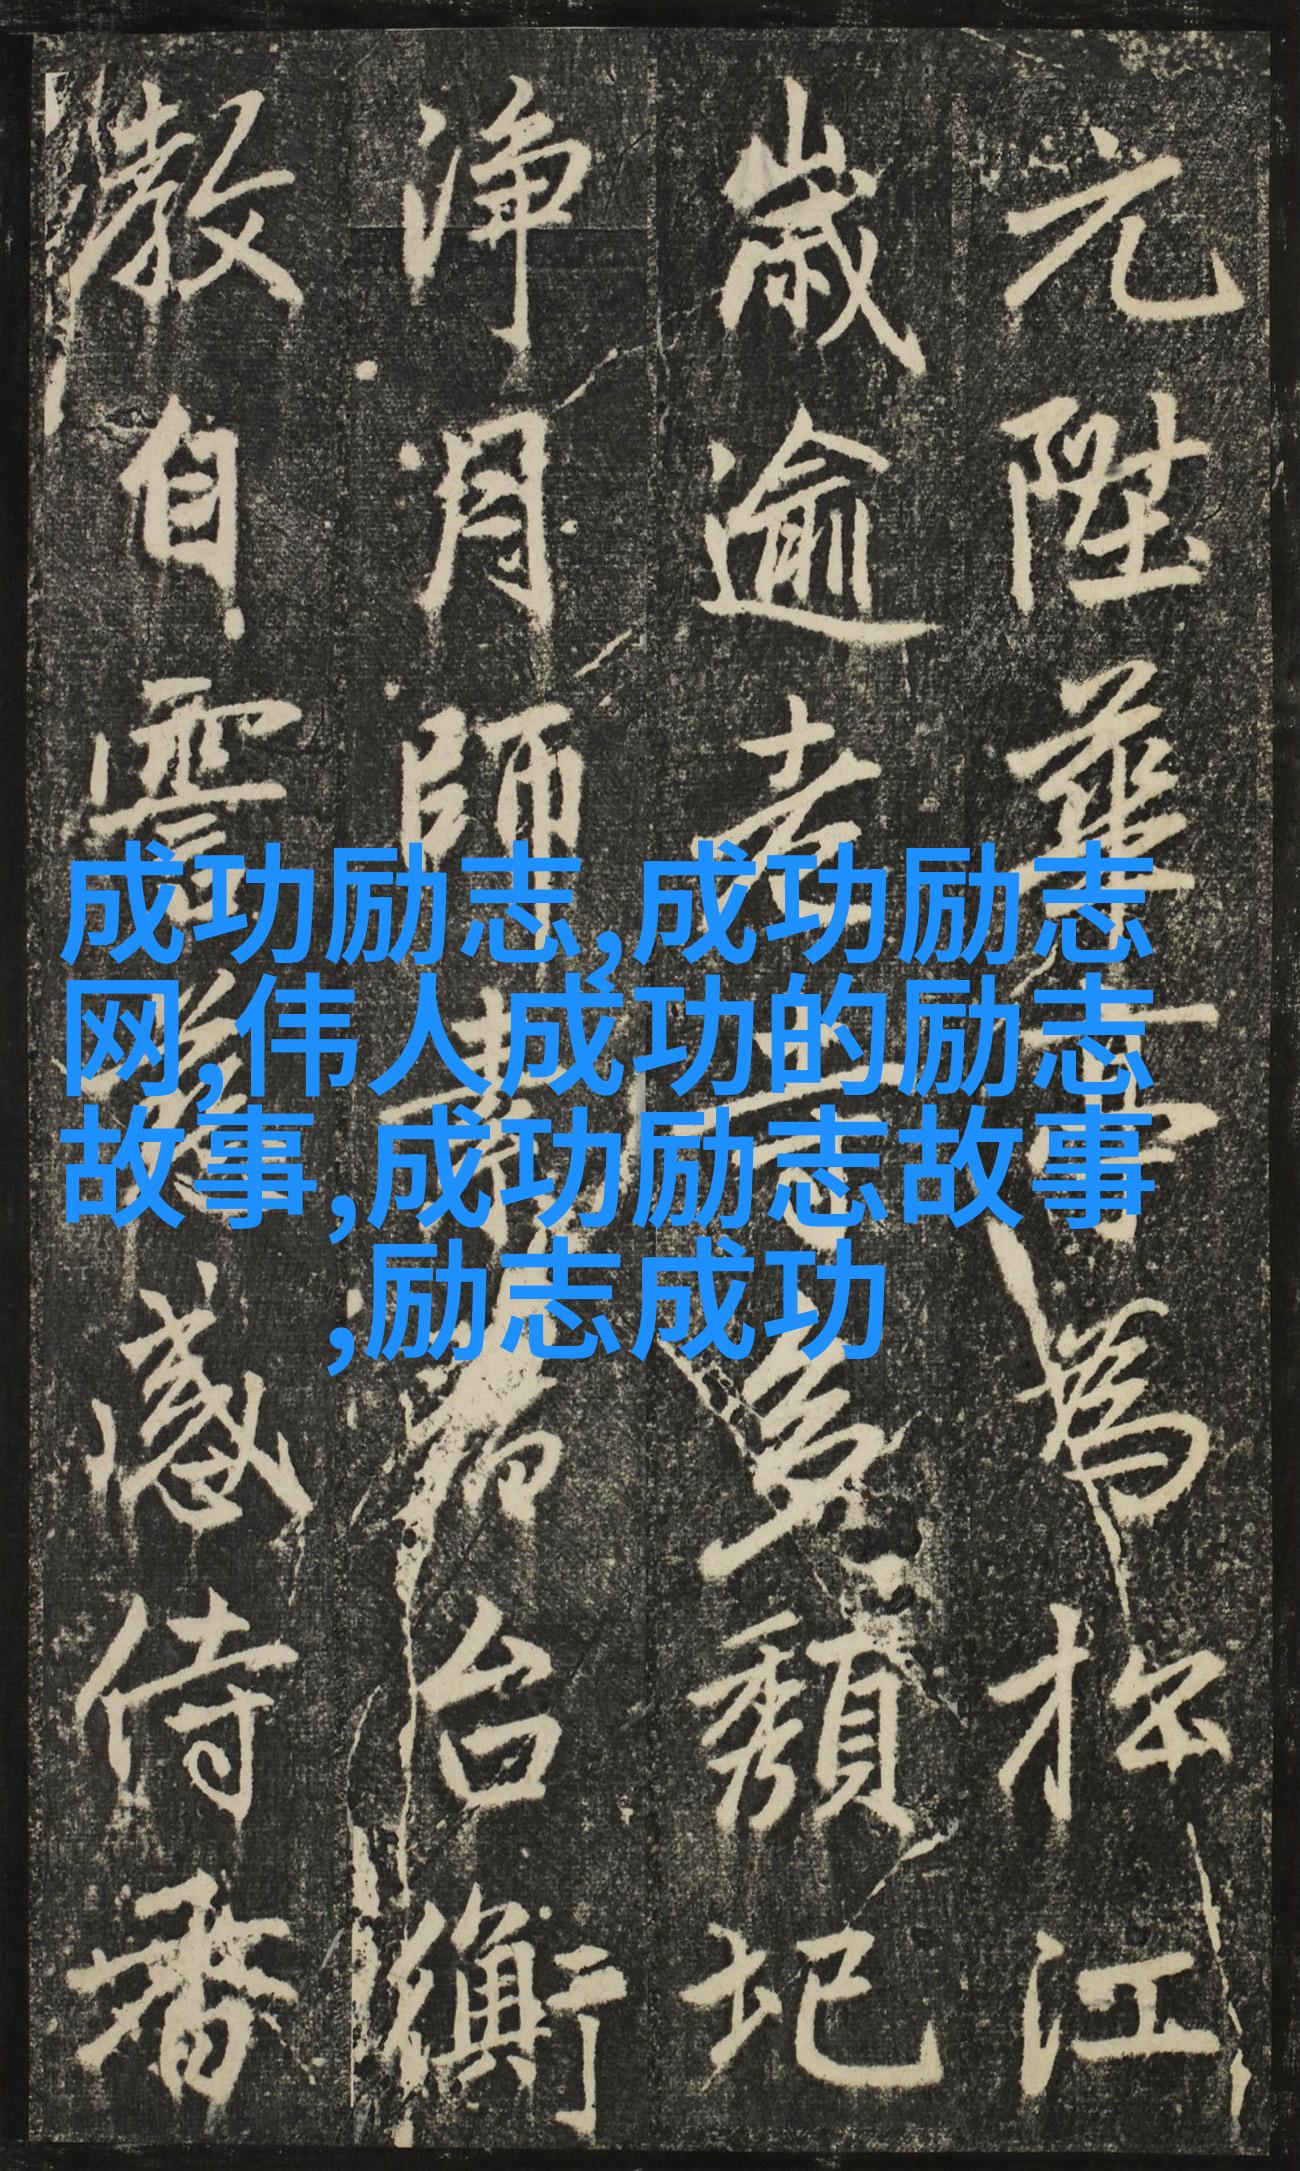 元陞華亭為松江
歲逾老多頹圮
淨月師台衡
教自感侍
成功励志,成功励志
网,伟人成功的励志
故事,成功励志故事
,励志成功